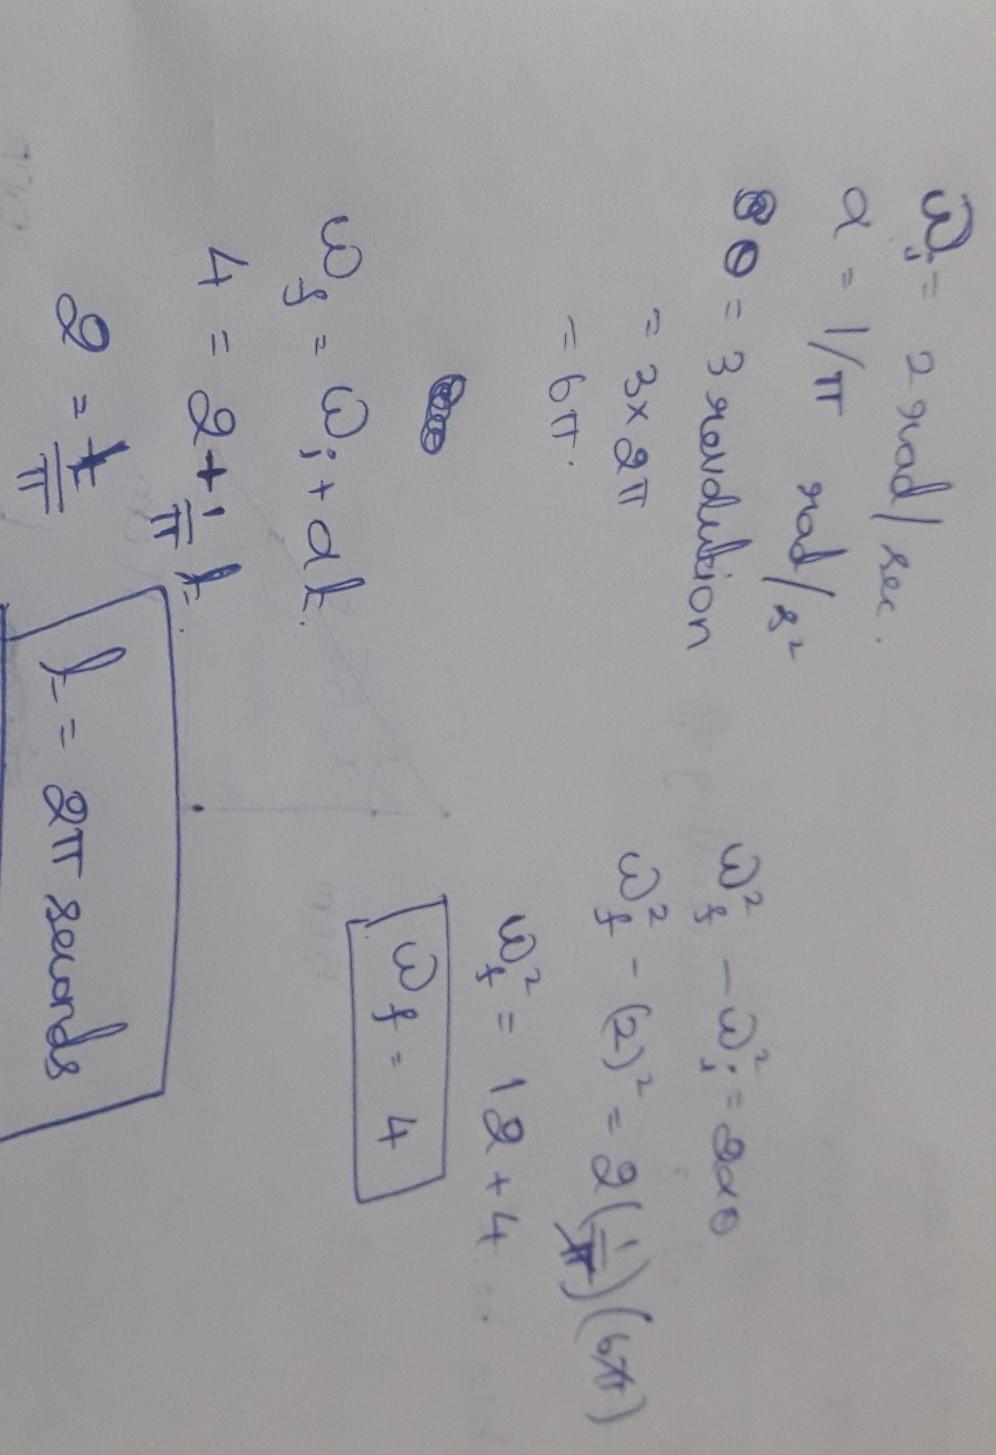 ωᵢ = 2 rad/sec.
α = 1/π rad/s²
θ = 3 revolution
= 3×2π
= 6π.
ω_f² - ωᵢ² = 2αθ
ω_f² - (2)² = 2(1/π)(6π)
ω_f² = 12 + 4
ω_f = 4
ω_f = ωᵢ + αt.
4 = 2 + 1/π t.
2 = t/π
t = 2π seconds